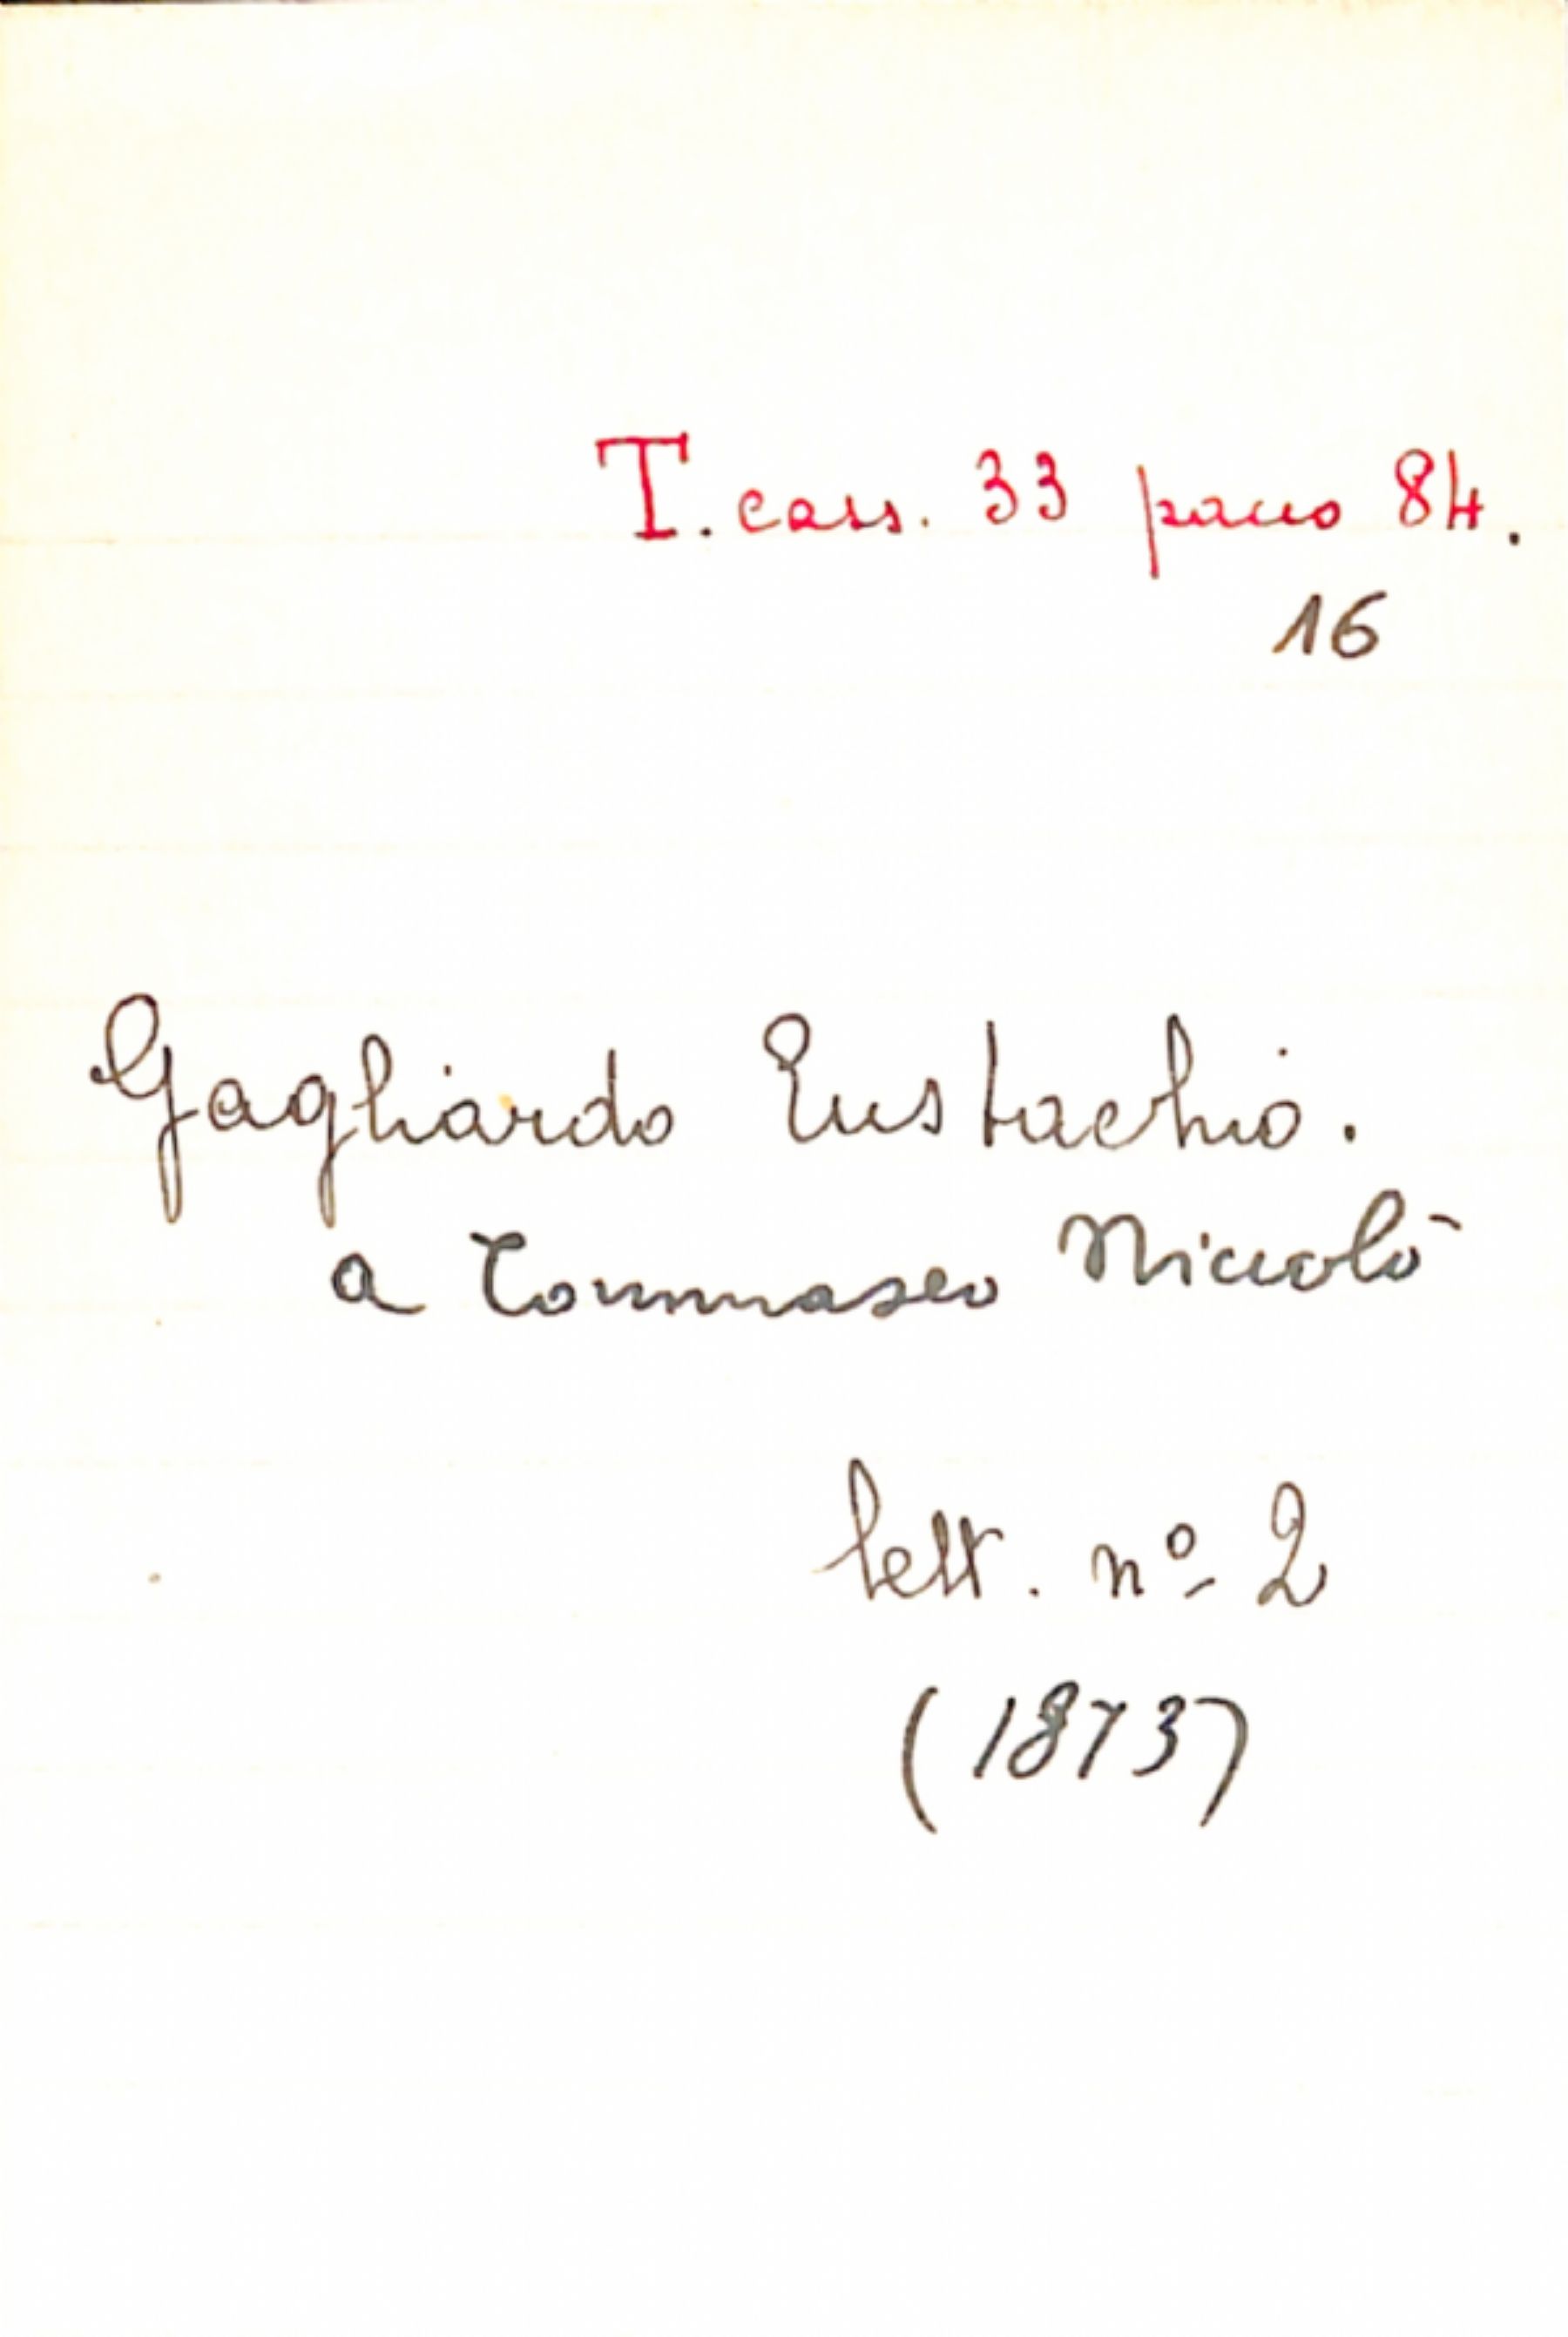 T. cass. 33 pacco 84.
16
Gagliardo Eustachio.
a Tommaseo Niccolò
lett. nº 2
(1873)